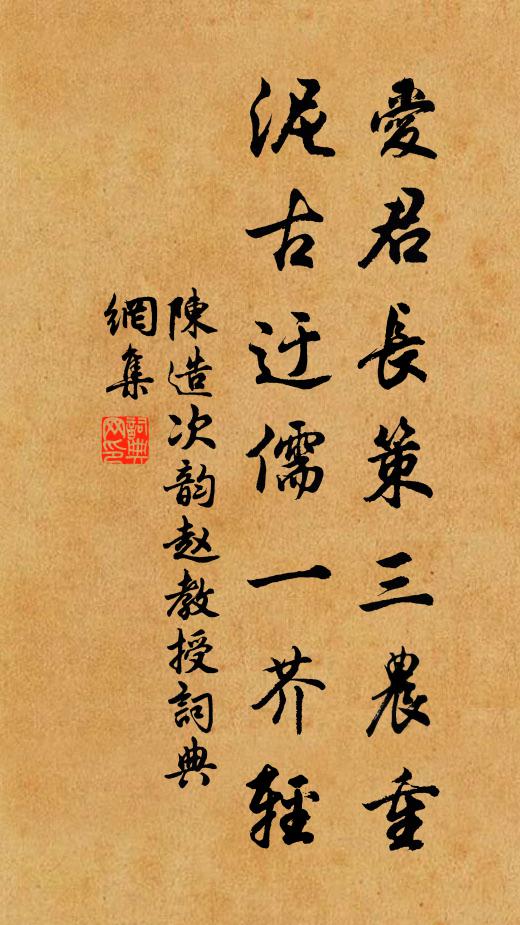 愛君長策三農重
泥古迂儒一芥輕
陳造次韵赵教授詞典
網集
詞典
网印